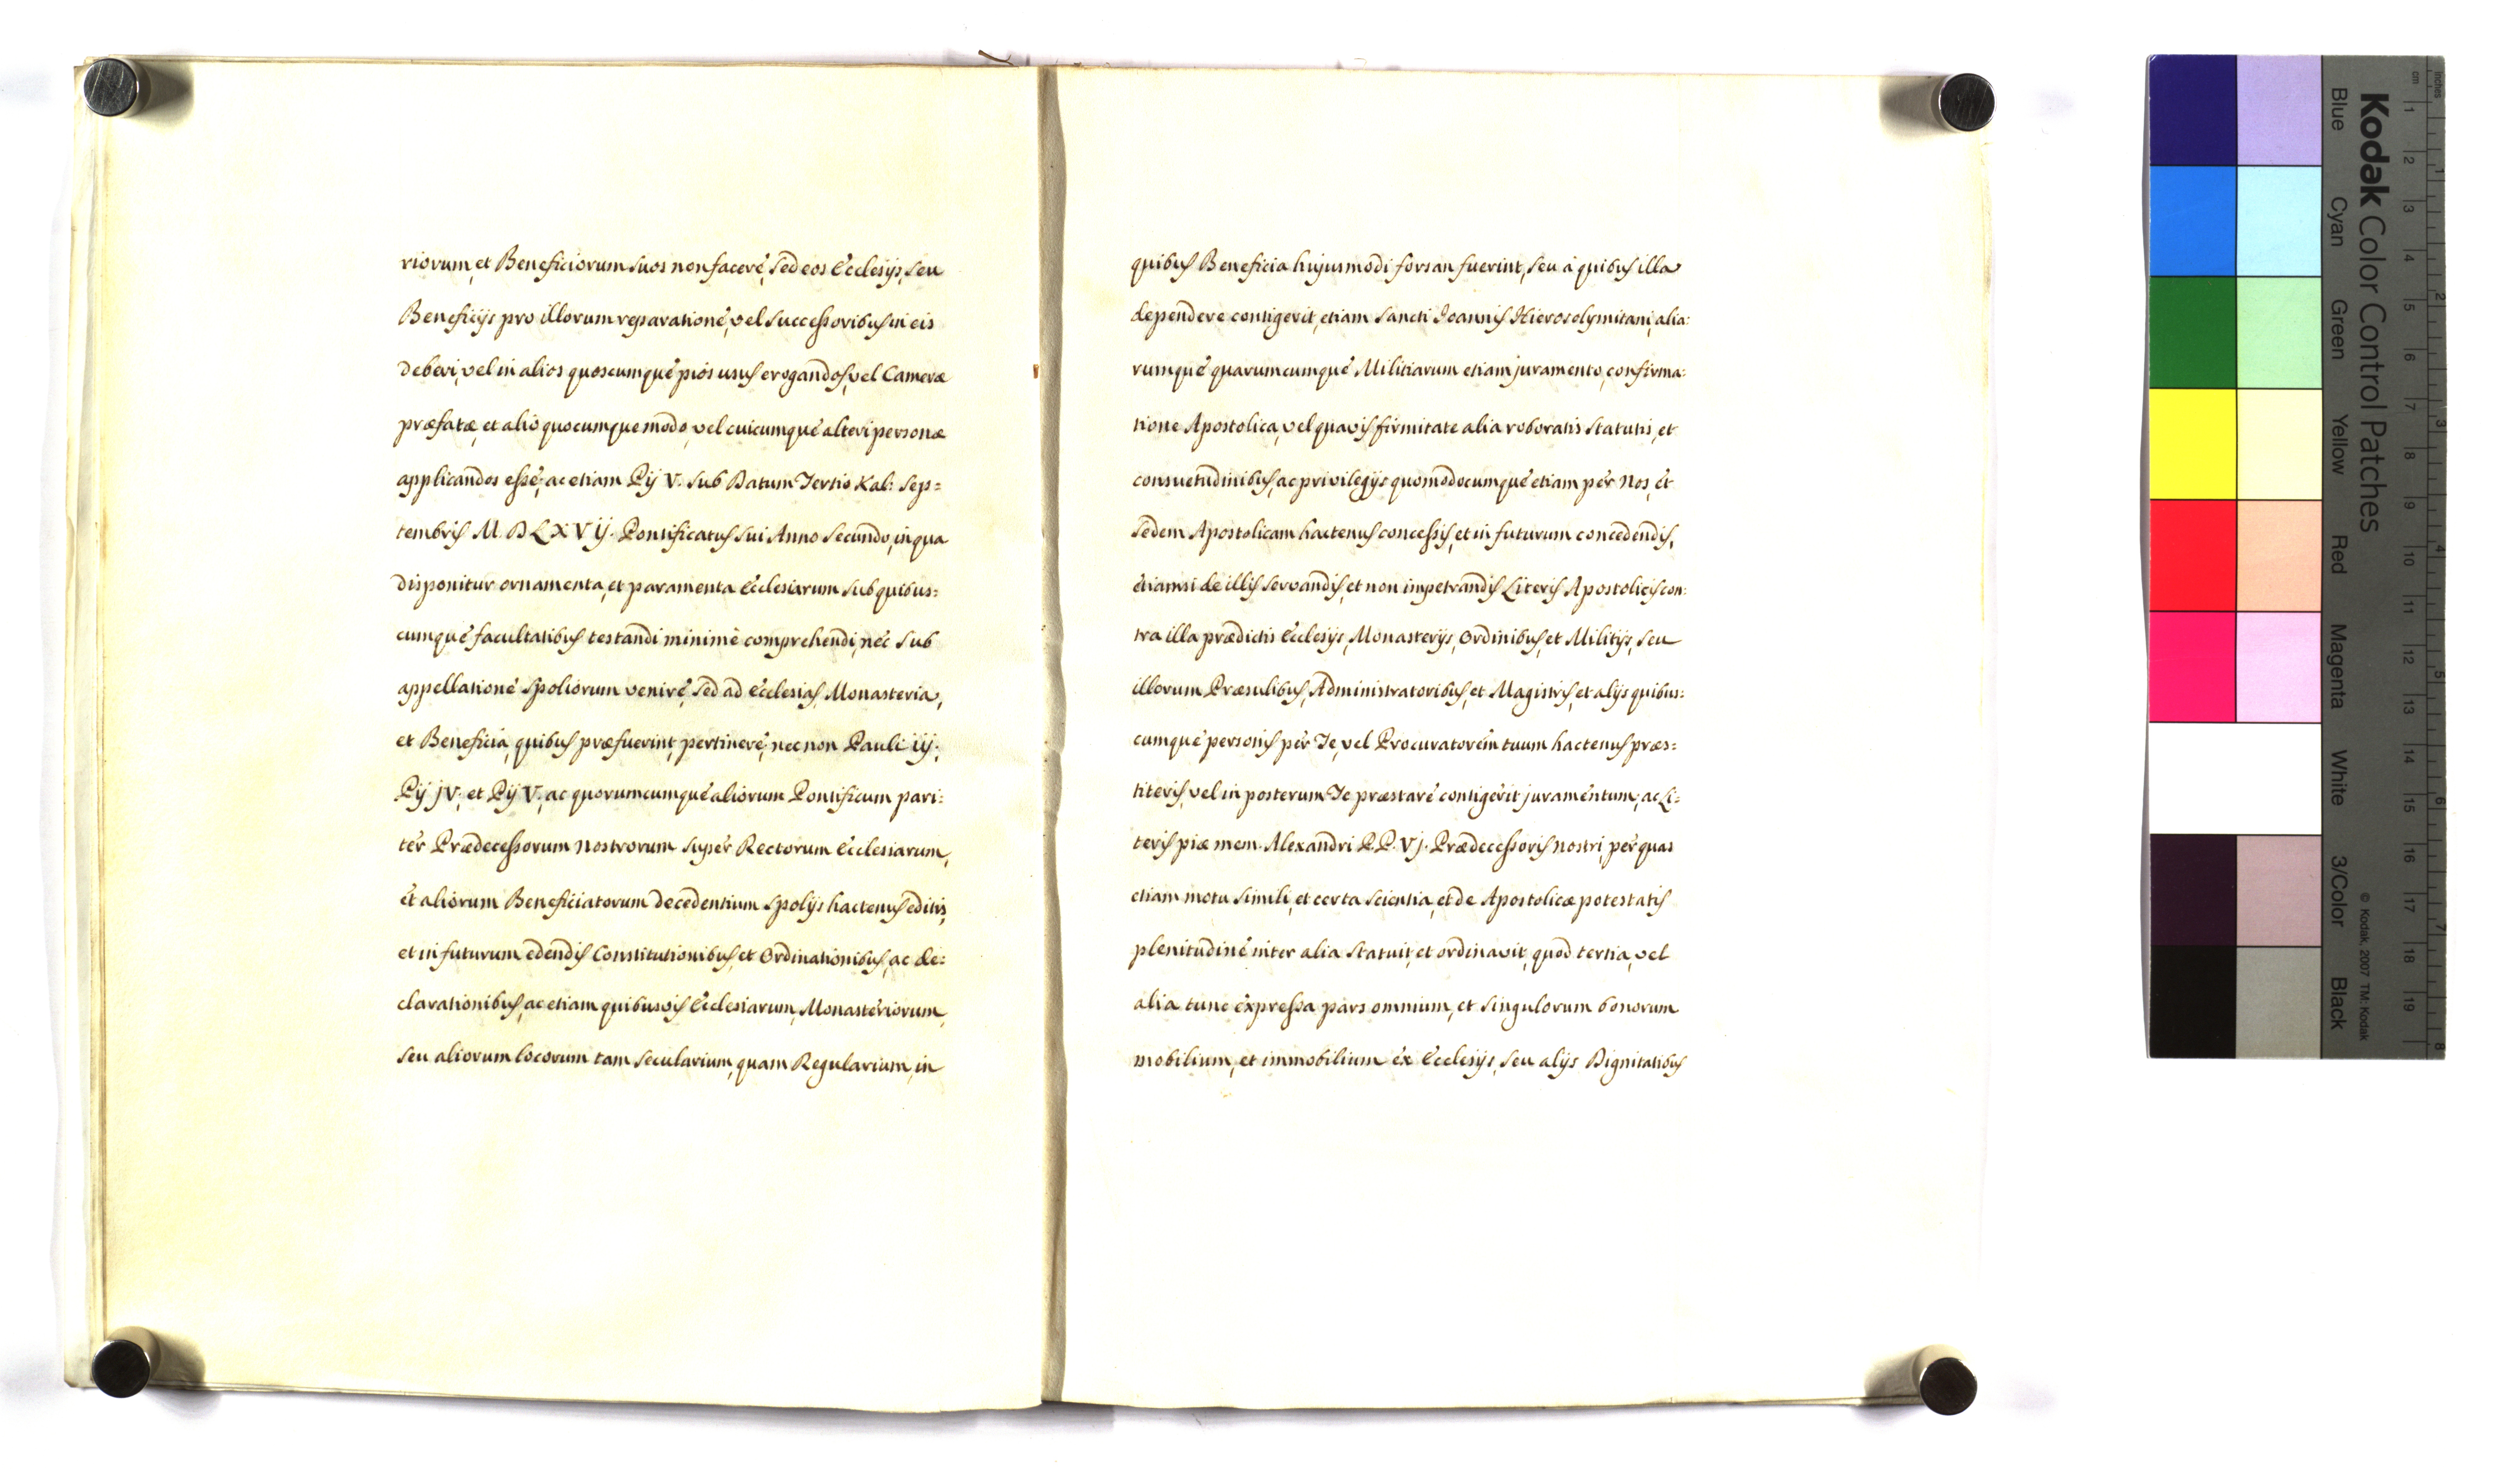 riorum, et Beneficiorum suos non facere, sed eos Ecclesijs, seu
Beneficijs pro illorum reparatione, vel successoribus in eis
deberi, vel in alios quoscumque pios usus erogandos, vel Cameræ
præfatæ, et alio quocumque modo, vel cuicumque alteri personæ
applicandos esse; ac etiam Pij V. sub Datum Tertio Kal: Sep=
tembris M. D LXVij. Pontificatus sui Anno secundo, in qua
disponitur ornamenta, et paramenta Ecclesiarum sub quibus=
cumque facultatibus testandi minimè comprehendi, nec sub
appellatione spoliorum venire, sed ad Ecclesias, Monasteria,
et Beneficia, quibus præfuerint, pertinere; nec non Pauli iij.
Pij jV; et Pij V, ac quorumcumque aliorum Pontificum pari:
ter Prædecessorum Nostrorum super Rectorum Ecclesiarum,
et aliorum Beneficiatorum decedentium spolijs hactenus editis,
et in futurum edendis Constitutionibus, et Ordinationibus, ac de:
clarationibus, ac etiam quibusvis Ecclesiarum, Monasteriorum,
seu aliorum locorum tam secularium, quam Regularium, in
quibus Beneficia hujusmodi forsan fuerint, seu à quibus illa
dependere contigerit, etiam Sancti Joannis Hierosolymitani, alia:
rumque quarumcumque Militiarum etiam juramento, confirma:
tione Apostolica, vel quavis firmitate alia roboratis statutis, et
consuetudinibus, ac privilegijs quomodocumque etiam per Nos, et
Sedem Apostolicam hactenus concessis, et in futurum concedendis,
etiamsi de illis servandis, et non impetrandis Literis Apostolicis con:
tra illa prædictis Ecclesijs, Monasterijs, Ordinibus, et Militijs, seu
illorum Præsulibus, Administratoribus, et Magistris, et alijs quibus:
cumque personis per Te, vel Procuratorem tuum hactenus præs:
titeris, vel in posterum Te præstare contigerit juramentum; ac Li:
teris piæ mem. Alexandri P.P. Vj. Prædecessoris nostri, per quas
etiam motu simili, et certa scientia, et de Apostolicæ potestatis
plenitudine inter alia statuit, et ordinavit, quod tertia, vel
alia tunc expressa pars omnium, et singulorum bonorum
mobilium, et immobilium ex Ecclesijs, seu alijs Dignitatibus
Kodak Color Control Patches
Blue Cyan Green Yellow Red Magenta White 3/Color Black
© Kodak, 2007 TM: Kodak
inches 1 2 3 4 5 6 7 8
cm 1 2 3 4 5 6 7 8 9 10 11 12 13 14 15 16 17 18 19